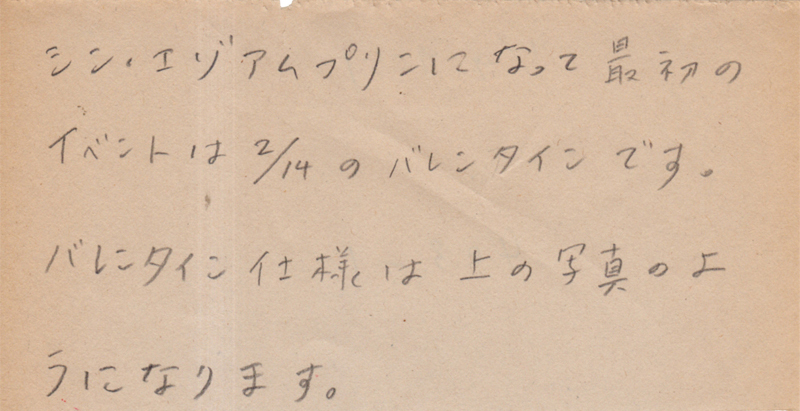 シン・エゾアムプリンになって最初の
イベントは2/14のバレンタインです。
バレンタイン仕様は上の写真のよ
うになります。